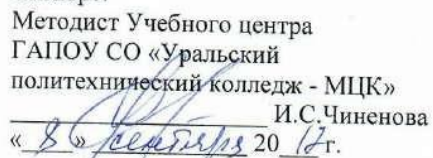 Методист Учебного центра
ГАПОУ СО «Уральский
политехнический колледж - МЦК»
И.С.Чиненова
« 8 » сентября 20 17 г.